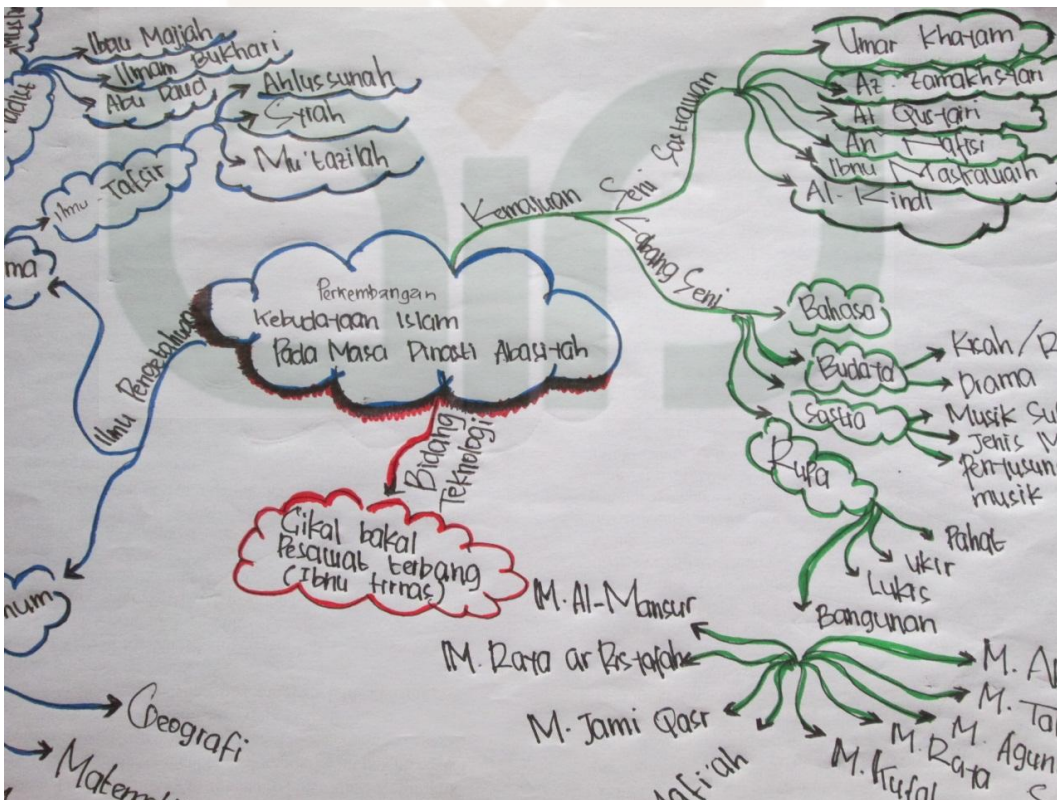 Ibnu Majjah
Imam Bukhari
Abu Daud
Ahlussunah
Syiah
Mu'tazilah
Ilmu Tafsir
ma
Ilmu Pengetahuan
num
Geografi
Perkembangan
Kebudayaan Islam
Pada Masa Dinasti Abasiyah
Bidang
Teknologi
Cikal bakal
Pesawat terbang
(Ibnu firnas)
Kemajuan Seni
Sastrawan
Umar Khayam
Az-Zamakhsyari
Al Qusyairi
An Nafisi
Ibnu Maskawaih
Al-Kindi
Cabang Seni
Bahasa
Budaya
Kisah/
Drama
Sastra
Musik
Jenis
Penyusun
musik
Rupa
Pahat
Ukir
Lukis
Bangunan
M. Al-Mansur
M. Raya ar Risyafah
M. Jami Qasr
afi'ah
M. Kufal
M. Raya
M. Agun
M. Ta